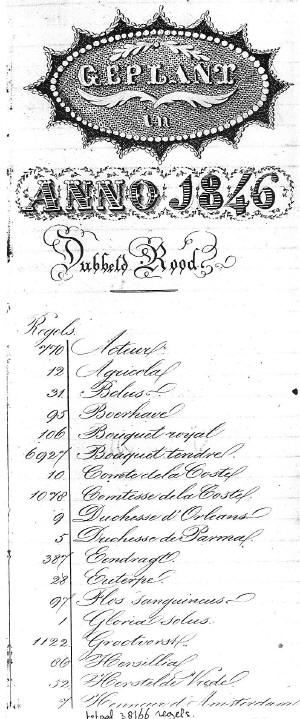 GEPLANT
in
ANNO 1846
Dubbeld Rood.
Regels.
770 Acteur
12 Agricola
31 Bolus
95 Boerhave
106 Bouquet royal
6927 Bouquet tendre
10 Comte de la Coste
1078 Comtesse de la Coste
9 Duchesse d'Orleans
5 Duchesse de Parma
387 Eendragt
28 Euterpe
97 Flos sanguineus
1 Gloria solus
1122 Grootvorst
66 Hersillia
52 Herstelde Vrede
7 d'Amsterdam
totaal 38166 regels.